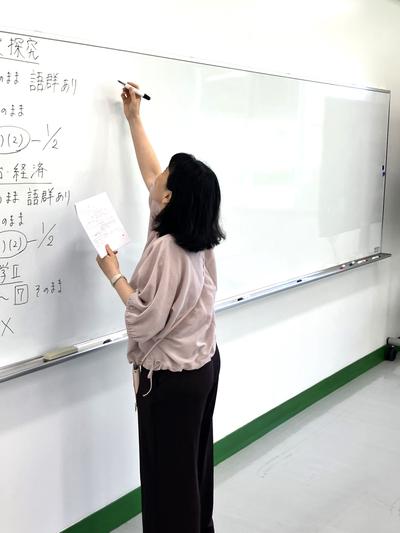 探究
のまま 語群あり
のまま
)(2) − 1/2
・経済
まま 語群あり
のまま
)(2) − 1/2
学Ⅱ
~ 7 そのまま
×